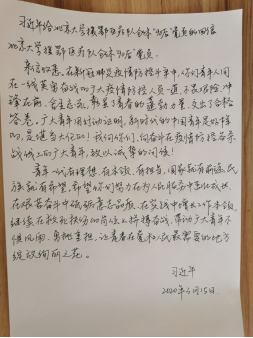 习近平给北京大学援鄂医疗队全体"90后"党员的回信
北京大学援鄂医疗队全体"90后"党员:
来信收悉。在新冠肺炎疫情防控斗争中,你们青年人同
在一线英勇奋战的广大疫情防控人员一道,不畏艰险、冲
锋在前、舍生忘死,彰显了青春的蓬勃力量,交出了合格
答卷。广大青年用行动证明,新时代的中国青年是好样
的,是堪当大任的!我向你们、向奋斗在疫情防控各条
战线上的广大青年,致以诚挚的问候!
青年一代有理想、有本领、有担当,国家就有前途,民
族就有希望。希望你们努力在为人民服务中茁壮成长、
在艰苦奋斗中砥砺意志品质、在实践中增长工作本领,
继续在救死扶伤的岗位上拼搏奋战,带动广大青年不
惧风雨、勇挑重担,让青春在党和人民最需要的地方
绽放绚丽之花。
习近平
2020年3月15日